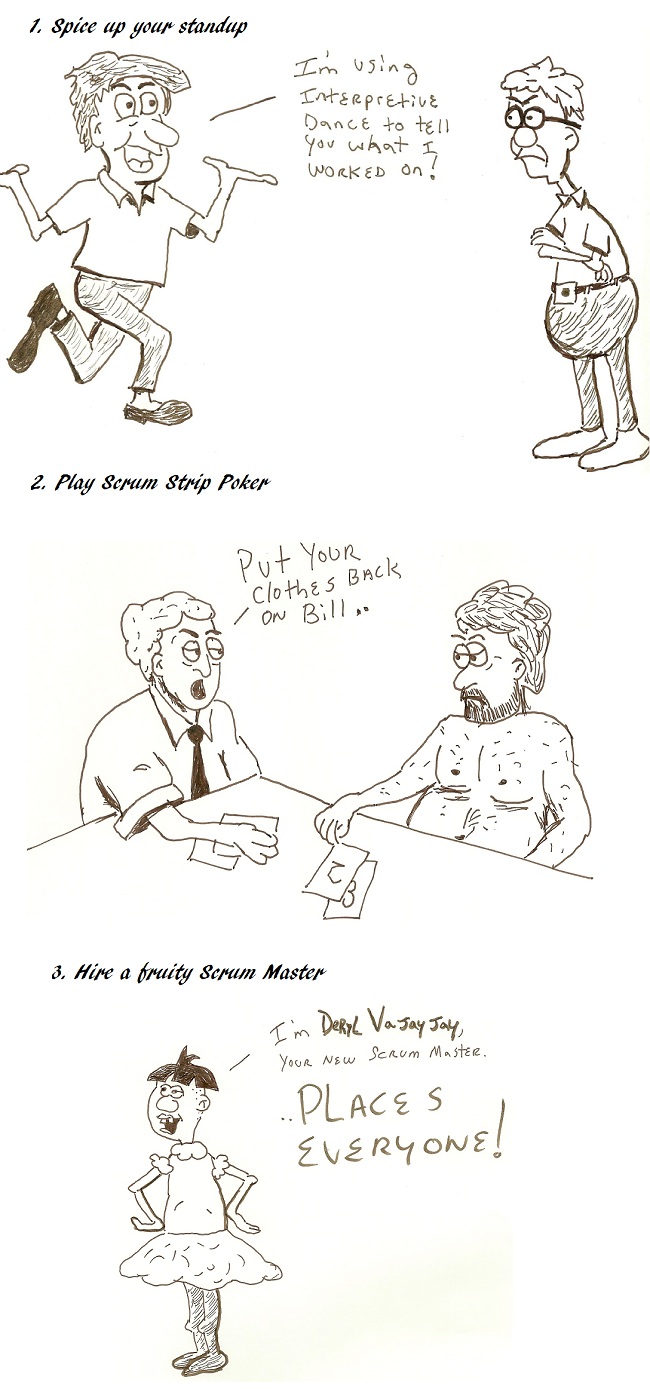 1. Spice up your standup
I'm using
Interpretive
Dance to tell
you what I
worked on!
2. Play Scrum Strip Poker
Put Your
Clothes Back
on Bill..
3. Hire a fruity Scrum Master
I'm Deryl Vajayjay,
Your new Scrum Master.
..Places
Everyone!